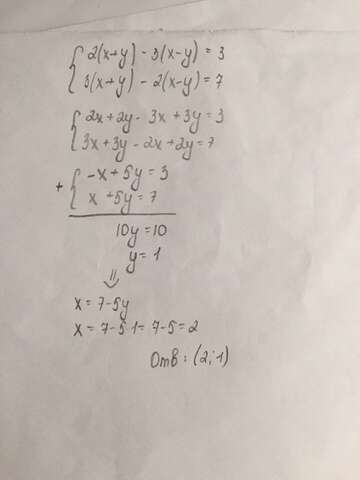 { 2(x+y) - 3(x-y) = 3
{ 3(x+y) - 2(x-y) = 7
{ 2x+2y - 3x + 3y = 3
{ 3x+3y - 2x + 2y = 7
+ { -x + 5y = 3
{ x + 5y = 7
10y = 10
y = 1
⇓
x = 7 - 5y
x = 7 - 5·1 = 7 - 5 = 2
Отв: (2;1)